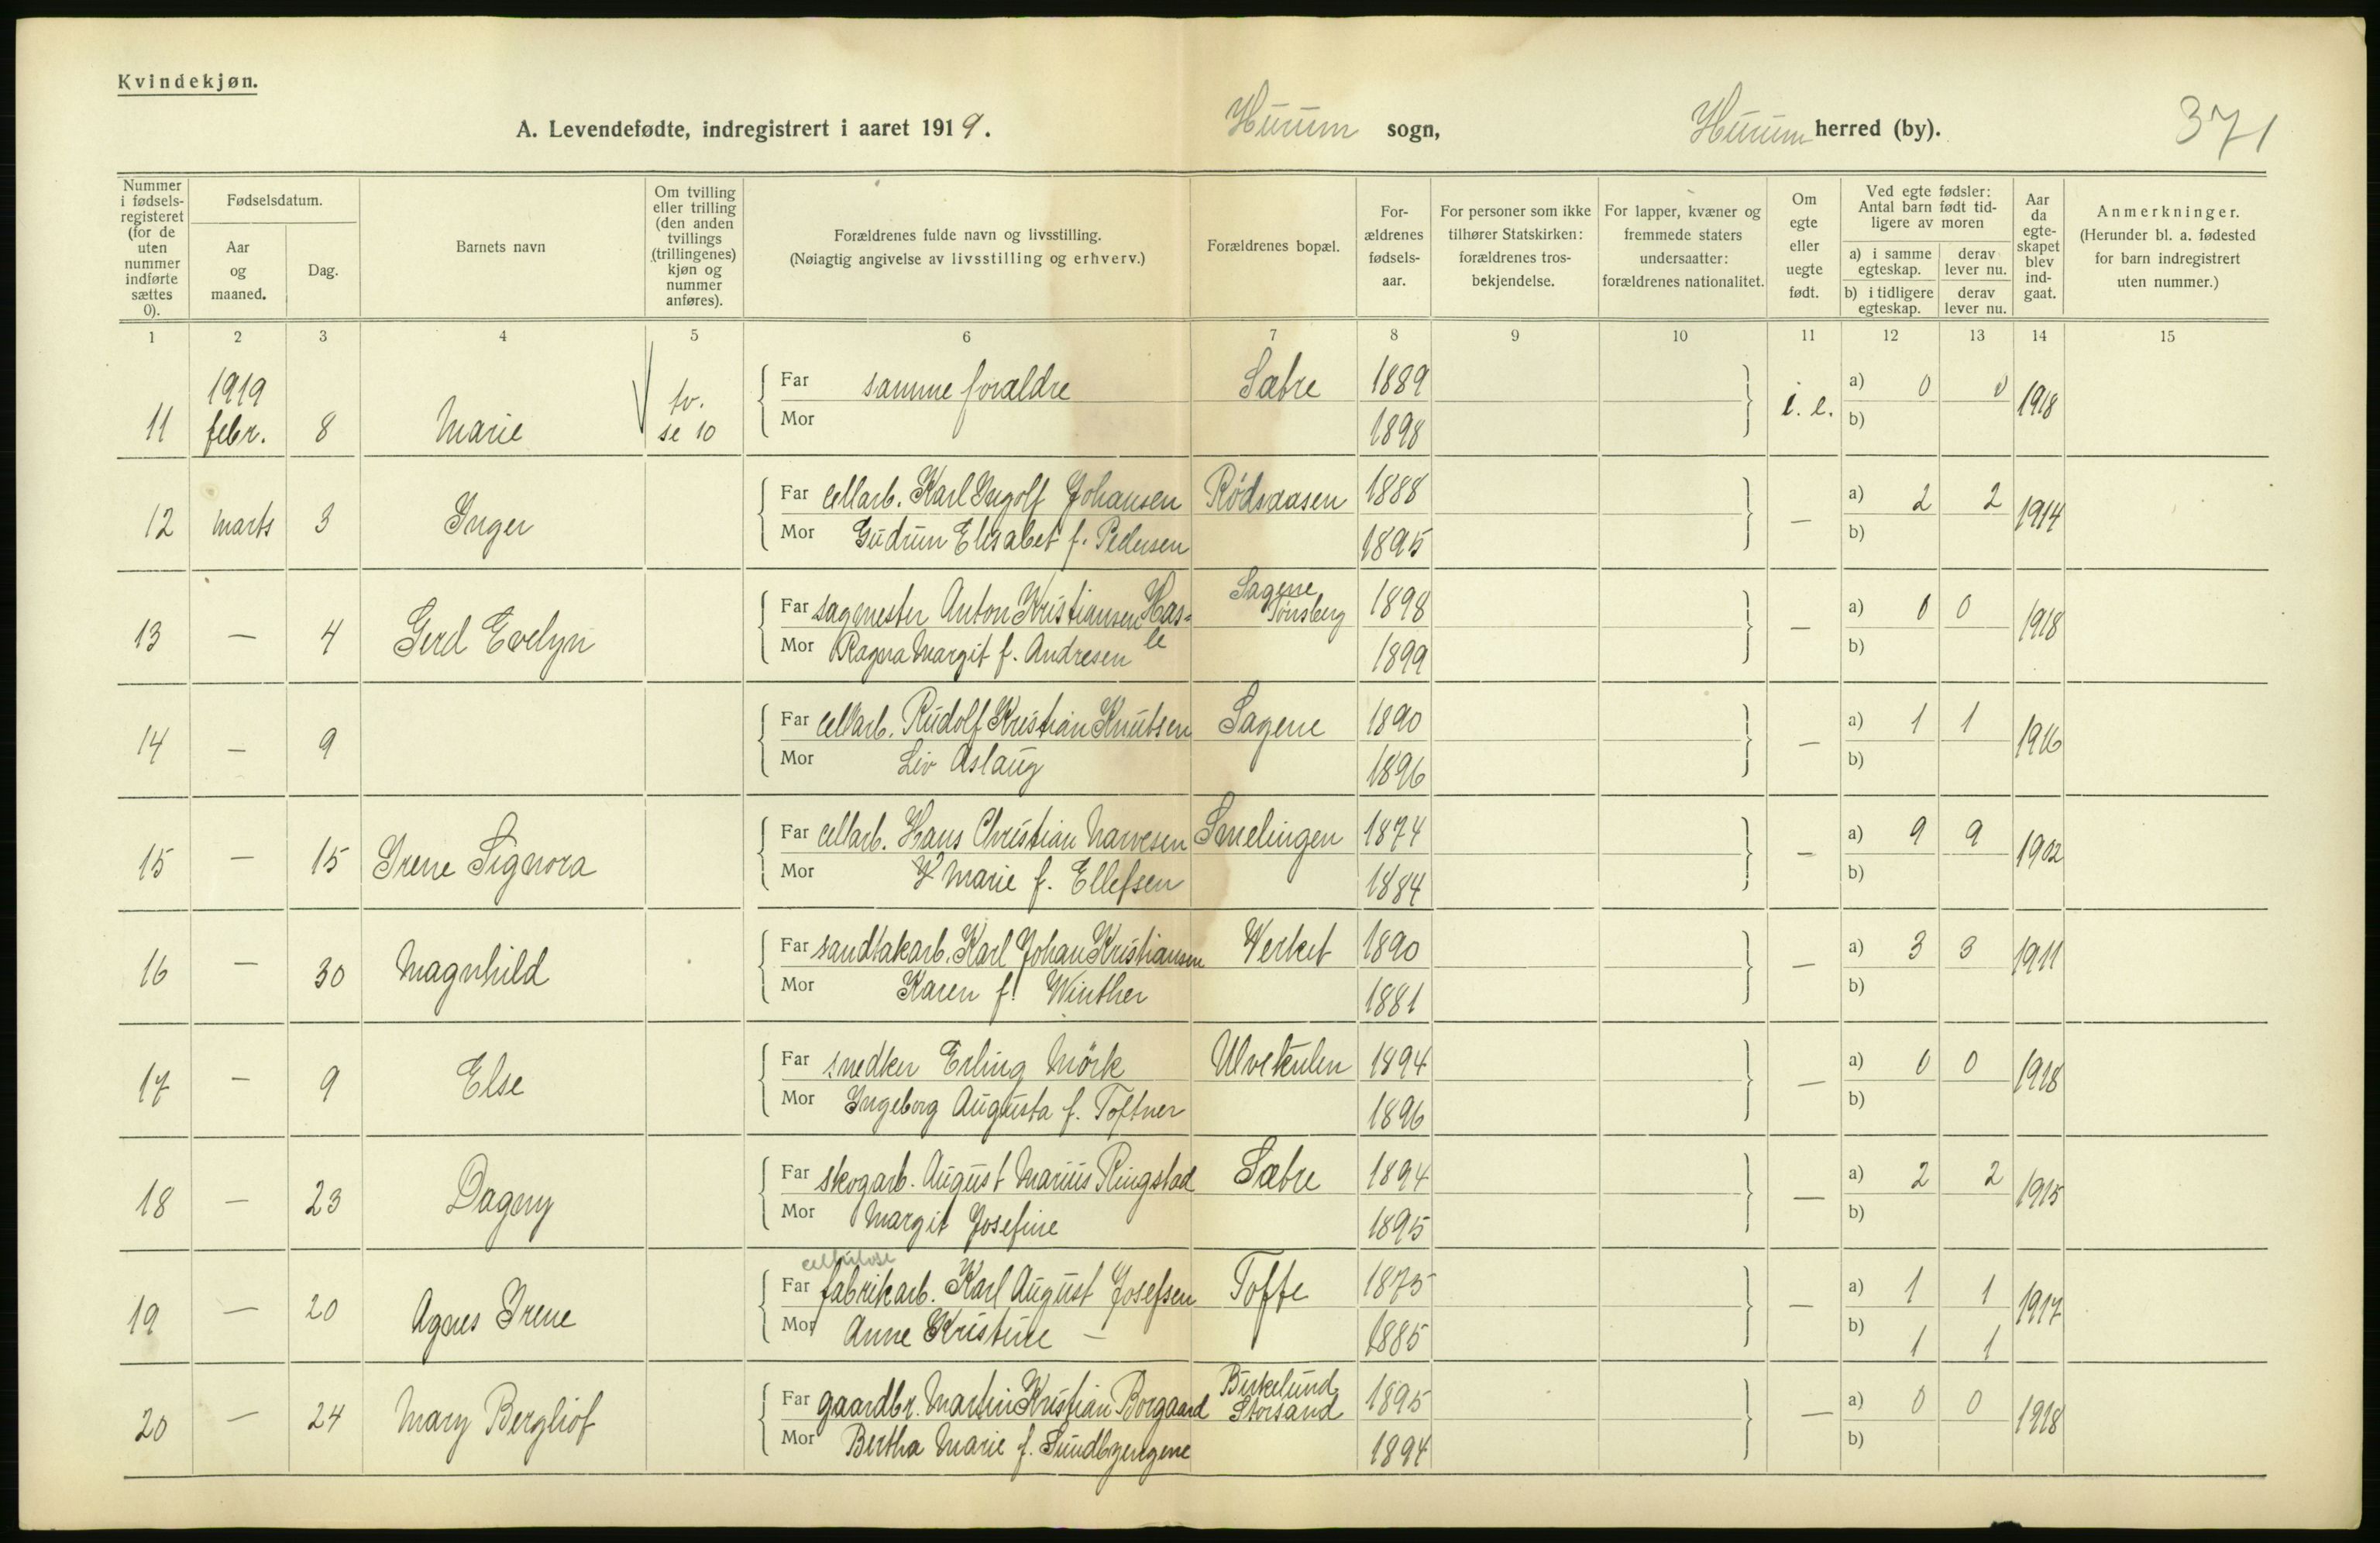 Kvindekjøn.
A. Levendefødte, indregistrert i aaret 1919. Hurum sogn, Hurum herred (by). 371
Nummer i fødselsregisteret (for de uten nummer indførte sættes 0).
Fødselsdatum.
Aar og maaned.
Dag.
Barnets navn
Om tvilling eller trilling (den anden tvillings (trillingenes) kjøn og nummer anføres).
Forældrenes fulde navn og livsstilling.
(Nøiagtig angivelse av livsstilling og erhverv.)
Forældrenes bopæl.
For-ældrenes fødsels-aar.
For personer som ikke tilhører Statskirken: forældrenes tros-bekjendelse.
For lapper, kvæner og fremmede staters undersaatter: forældrenes nationalitet.
Om egte eller uegte født.
Ved egte fødsler: Antal barn født tid-ligere av moren
a) i samme egteskap. derav lever nu.
b) i tidligere egteskap. derav lever nu.
Aar da egte-skapet blev ind-gaat.
Anmerkninger.
(Herunder bl. a. fødested for barn indregistrert uten nummer.)
1 2 3 4 5 6 7 8 9 10 11 12 13 14 15
11 1919 febr. 8 Marie tv. se 10 Far samme forældre Sætre 1889 i. e. a) 0 0 1918
Mor 1898 b)
12 marts 3 Inger Far cellarb. Karl Ingolf Johansen Rødsaasen 1888 — a) 2 2 1914
Mor Gudrun Elisabet f. Pedersen 1895 b)
13 — 4 Gerd Evelyn Far sagmester Anton Kristiansen Has-le Sagene Tønsberg 1898 — a) 0 0 1918
Mor Ragna Margit f. Andresen 1899 b)
14 — 9 Far cellarb. Rudolf Kristian Knutsen Sagene 1890 — a) 1 1 1916
Mor Liv Aslaug 1896 b)
15 — 15 Irene Signora Far cellarb. Hans Christian Narvesen Smelingen 1874 — a) 9 9 1902
Mor Marie f. Ellefsen 1884 b)
16 — 30 Magnhild Far sandtakarb. Karl Johan Kristiansen Verket 1890 — a) 3 3 1911
Mor Karen f. Winther 1881 b)
17 — 9 Else Far snedker Erling Mörk Ulvekulen 1894 — a) 0 0 1918
Mor Ingeborg Augusta f. Toftner 1896 b)
18 — 23 Dagny Far skogarb. August Marius Ringstad Sætre 1894 — a) 2 2 1915
Mor Margit Josefine 1895 b)
cellulose
19 — 20 Agnes Irene Far fabrikarb. Karl August Josefsen Tofte 1875 — a) 1 1 1917
Mor Anne Kristine — 1885 b) 1 1
20 — 24 Mary Bergliot Far gaardbr. Martin Kristian Borgaard Birkelund Storsand 1895 — a) 0 0 1918
Mor Bertha Marie f. 1894 b)